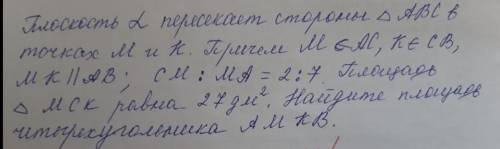 Плоскость α пересекает стороны △ ABC в
точках M и K. Причем M ∈ AC, K ∈ CB,
MK || AB; CM : MA = 2 : 7. Площадь
△ MCK равна 27 дм². Найдите площадь
четырехугольника AMKB.